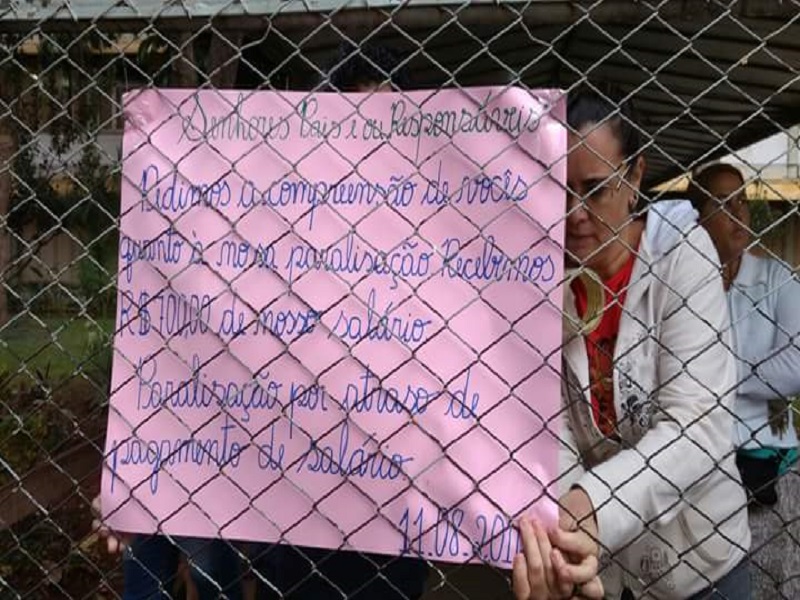 Senhores Pais e ou Responsáveis
Pedimos a compreensão de vocês
quanto à nossa paralisação Recebemos
R$ 700,00 de nosso salário
Paralisação por atraso de
pagamento de salário